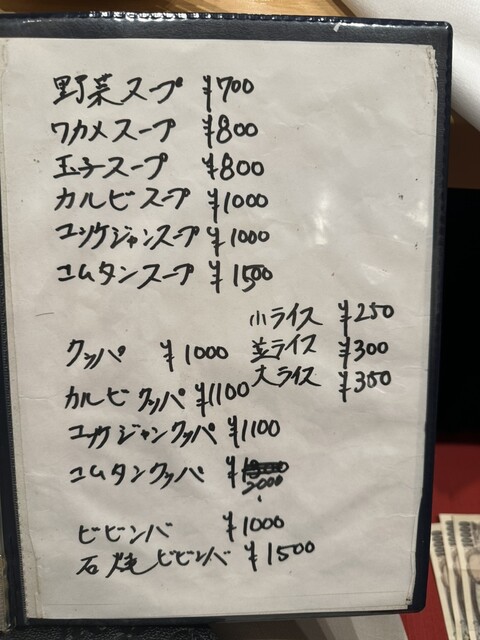 野菜スープ ¥700
ワカメスープ ¥800
玉子スープ ¥800
カルビスープ ¥1000
ユッケジャンスープ ¥1000
コムタンスープ ¥1500
小ライス ¥250
並ライス ¥300
大ライス ¥350
クッパ ¥1000
カルビクッパ ¥1100
ユッケジャンクッパ ¥1100
コムタンクッパ ¥2000
ビビンバ ¥1000
石焼ビビンバ ¥1500